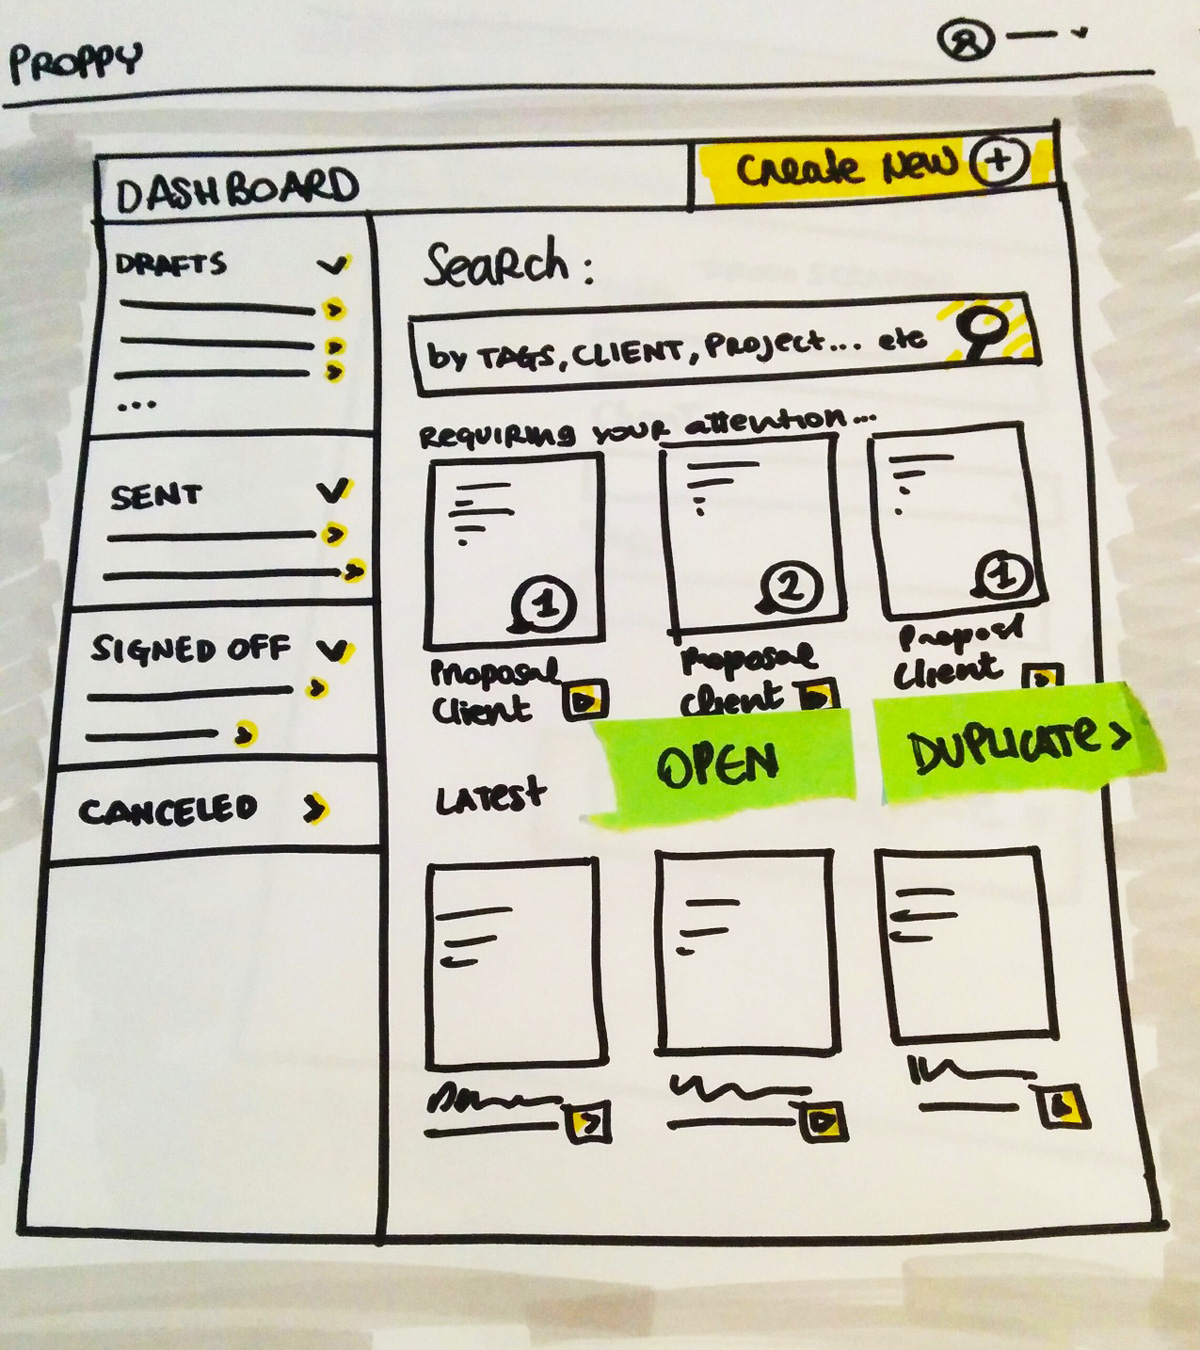 PROPPY
DASHBOARD
Create New +
DRAFTS
...
SENT
SIGNED OFF
CANCELED
Search:
by TAGS, CLIENT, PROJECT... etc
REQUIRING YOUR attention...
1
2
1
Proposal
Client
Proposal
Client
Proposl
Client
OPEN
DUPLICATE >
LATEST